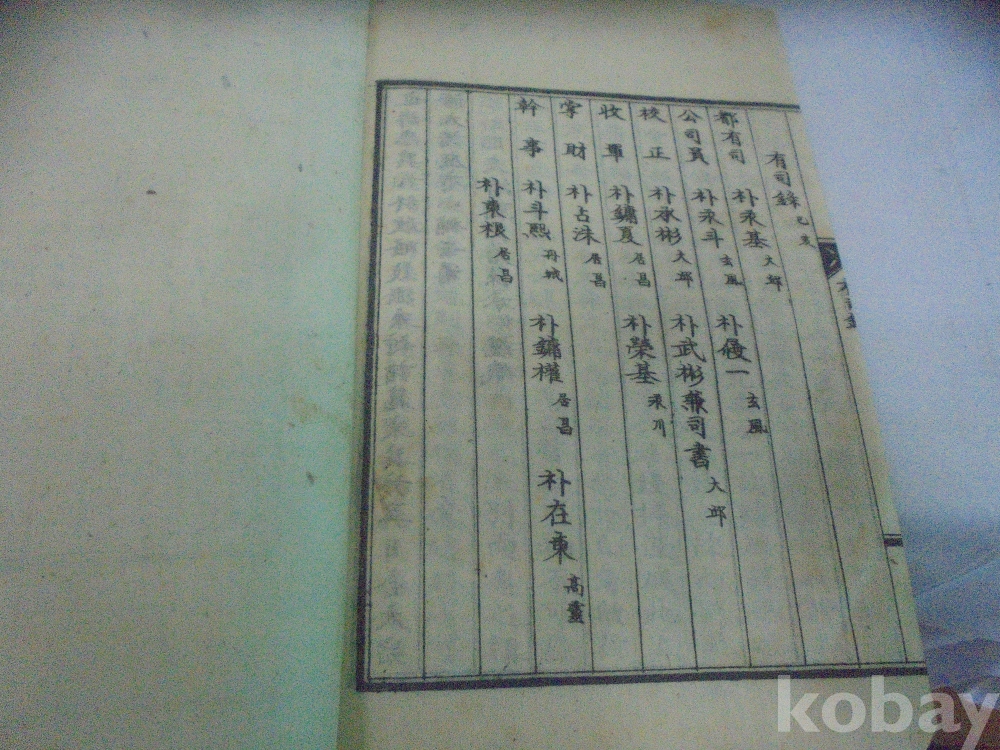 有司錄 己亥
都有司 朴永基 大邱
公司員 朴永斗 玄風 朴優一 玄風
校正 朴永彬 大邱 朴武彬兼司書 大邱
收單 朴鏞夏 居昌 朴榮基 永川
掌財 朴占洙 居昌
幹事 朴斗熙 丹城 朴鏞權 居昌 朴在東 高靈
朴東根 居昌
kobay